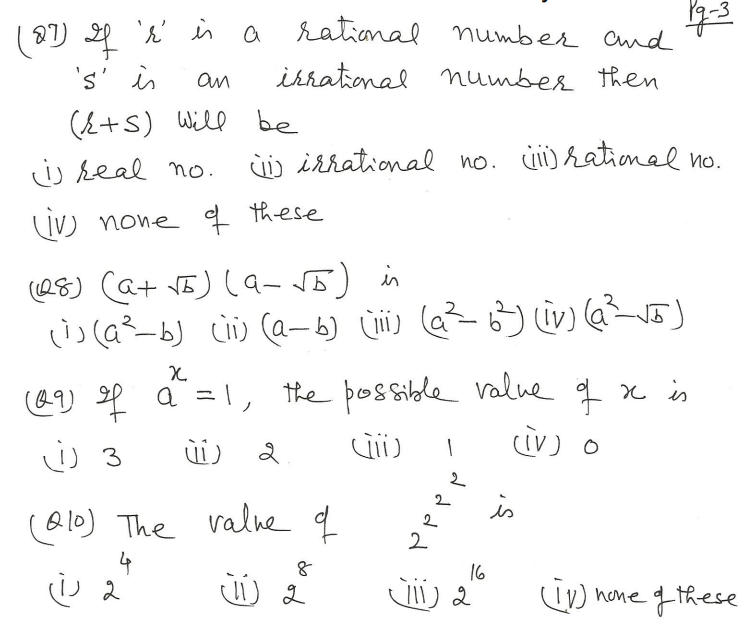 Pg-3
(Q7) If 'r' is a rational number and
's' is an irrational number then
(r+s) will be
(i) real no. (ii) irrational no. (iii) rational no.
(iv) none of these
(Q8) (a+√b)(a-√b) is
(i) (a²-b) (ii) (a-b) (iii) (a²-b²) (iv) (a²-√b)
(Q9) If aˣ=1, the possible value of x is
(i) 3 (ii) 2 (iii) 1 (iv) 0
(Q10) The value of 2^2^2^2 is
(i) 2⁴ (ii) 2⁸ (iii) 2¹⁶ (iv) none of these